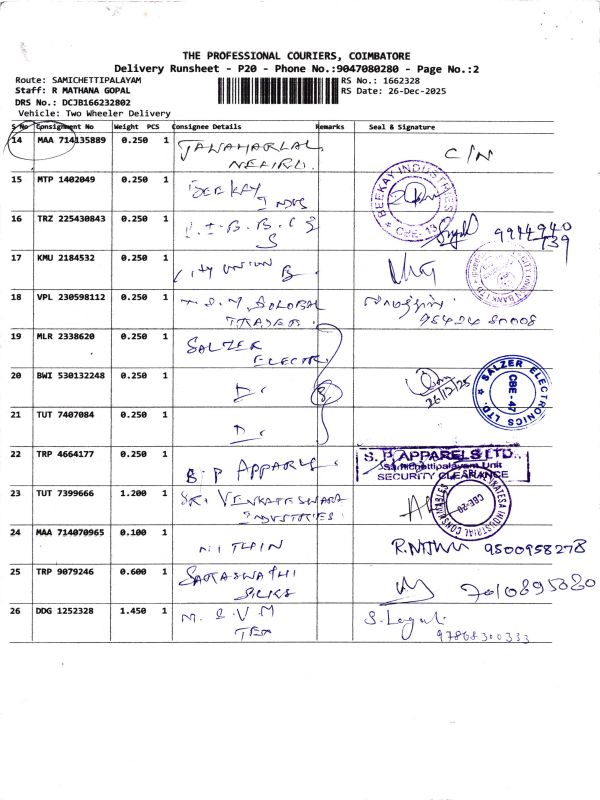 THE PROFESSIONAL COURIERS, COIMBATORE
Delivery Runsheet - P20 - Phone No.:9047080280 - Page No.:2
Route: SAMICHETTIPALAYAM
RS No.: 1662328
Staff: R MATHANA GOPAL
RS Date: 26-Dec-2025
DRS No.: DCJB166232802
Vehicle: Two Wheeler Delivery
S No Consignment No Weight PCS Consignee Details Remarks Seal & Signature
14 MAA 714135889 0.250 1 JAWAHARLAL
NEHRU C/N
15 MTP 1402049 0.250 1 BEEKAY
INDUS
BEEKAY INDUSTRIES
CBE-
16 TRZ 225430843 0.250 1
S
9944940
739
17 KMU 2184532 0.250 1 CITY UNION B.
CITY UNION BANK LTD
18 VPL 230598112 0.250 1 GLOBAL
TRADER.
19 MLR 2338620 0.250 1 SALZER
ELECTR
20 BWI 530132248 0.250 1 D. 3
26/12/25
SALZER ELECTRONICS LTD.
CBE-47
21 TUT 7407084 0.250 1 D.
22 TRP 4664177 0.250 1 S. P APPARLS.
S. P. APPARELS LTD.
Samichettipalayam Unit
SECURITY CLEARANCE
23 TUT 7399666 1.200 1 SRI. VENKATESWARA
INDUSTRIES.
INDUSTRIAL CONSUMABLES
CBE-20
24 MAA 714070965 0.100 1 NITHIN R.Nithin 9500958278
25 TRP 9079246 0.600 1 SARASWATHI
SILKS 7010895080
26 DDG 1252328 1.450 1 M. S. V M
TEX
97868300333